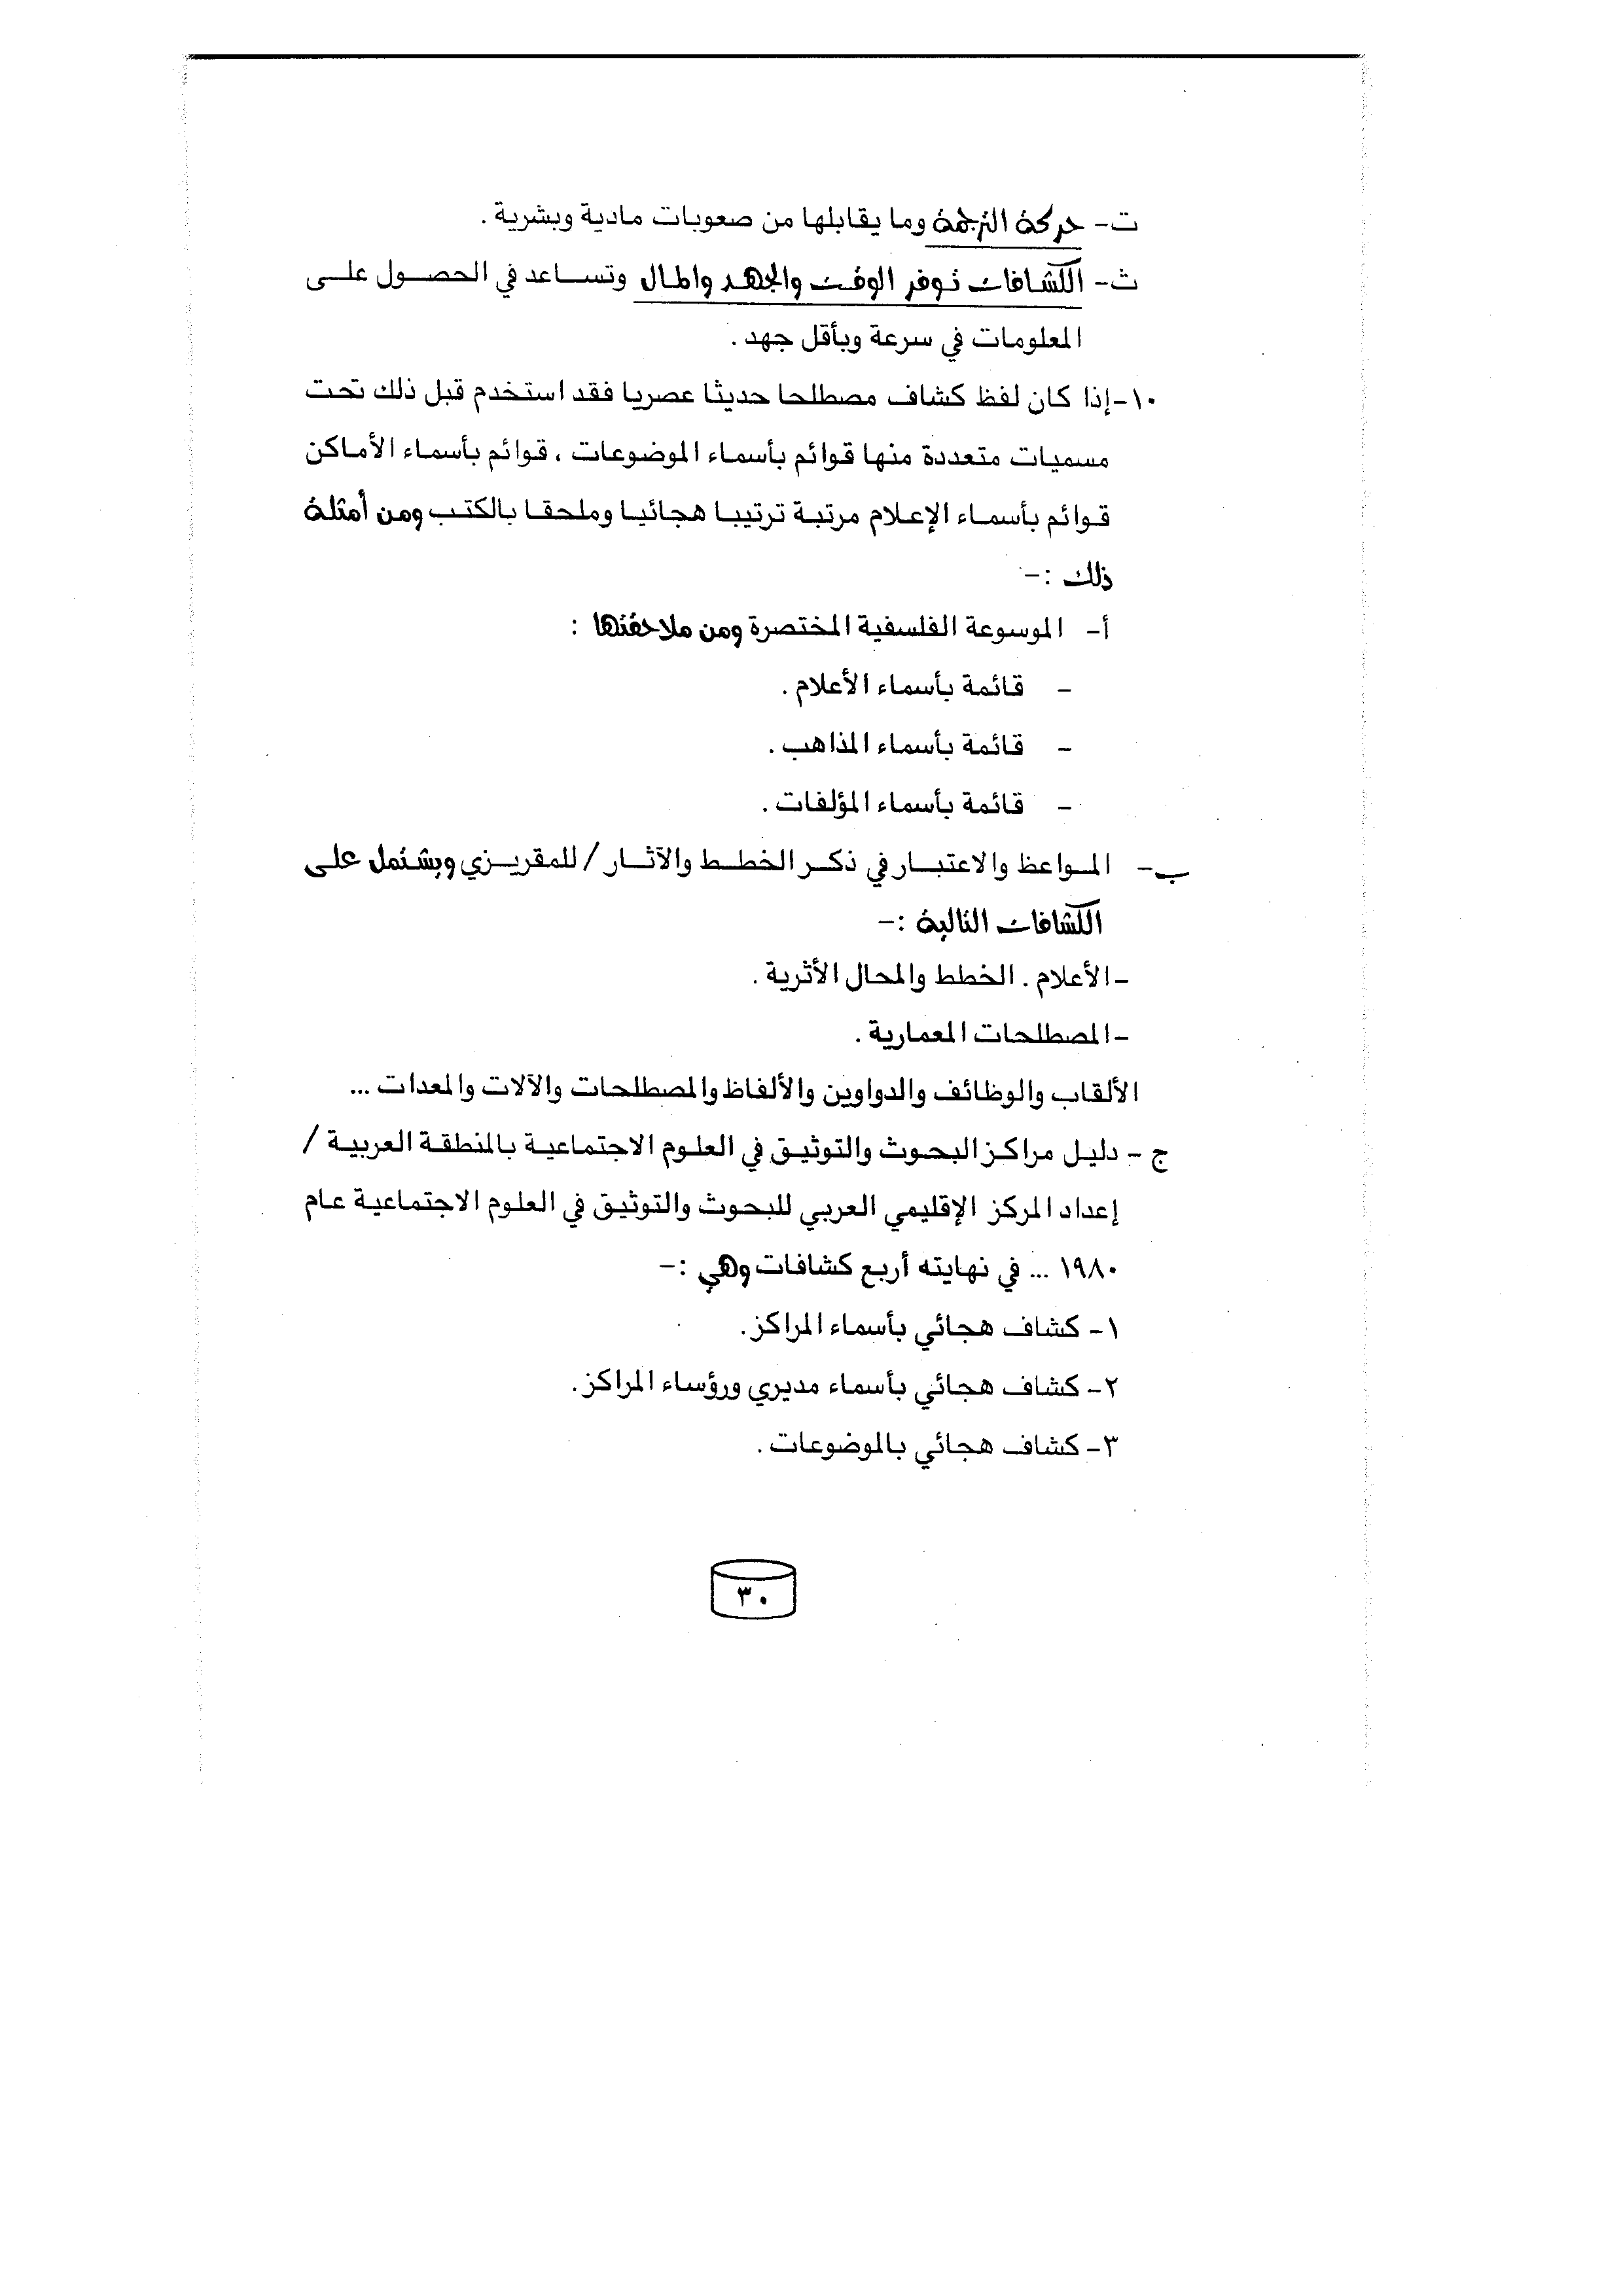 ت- حركة الترجمة وما يقابلها من صعوبات مادية وبشرية .
ث- الكشافات توفر الوقت والجهد والمال وتساعد في الحصول على
المعلومات في سرعة وبأقل جهد .
١٠-إذا كان لفظ كشاف مصطلحا حديثا عصريا فقد استخدم قبل ذلك تحت
مسميات متعددة منها قوائم بأسماء الموضوعات ، قوائم بأسماء الأماكن
قوائم بأسماء الإعلام مرتبة ترتيبا هجائيا وملحقا بالكتب ومن أمثلة
ذلك :-
أ- الموسوعة الفلسفية المختصرة ومن ملاحقتها :
- قائمة بأسماء الأعلام .
- قائمة بأسماء المذاهب .
- قائمة بأسماء المؤلفات .
ب- المواعظ والاعتبار في ذكر الخطط والآثار / للمقريزي ويشتمل على
الكشافات التالية :-
-الأعلام . الخطط والمحال الأثرية .
-المصطلحات المعمارية .
الألقاب والوظائف والدواوين والألفاظ والمصطلحات والآلات والمعدات ...
ج - دليل مراكز البحوث والتوثيق في العلوم الاجتماعية بالمنطقة العربية /
إعداد المركز الإقليمي العربي للبحوث والتوثيق في العلوم الاجتماعية عام
١٩٨٠ ... في نهايته أربع كشافات وهي :-
١- كشاف هجائي بأسماء المراكز.
٢- كشاف هجائي بأسماء مديري ورؤساء المراكز.
٣- كشاف هجائي بالموضوعات .
٣٠